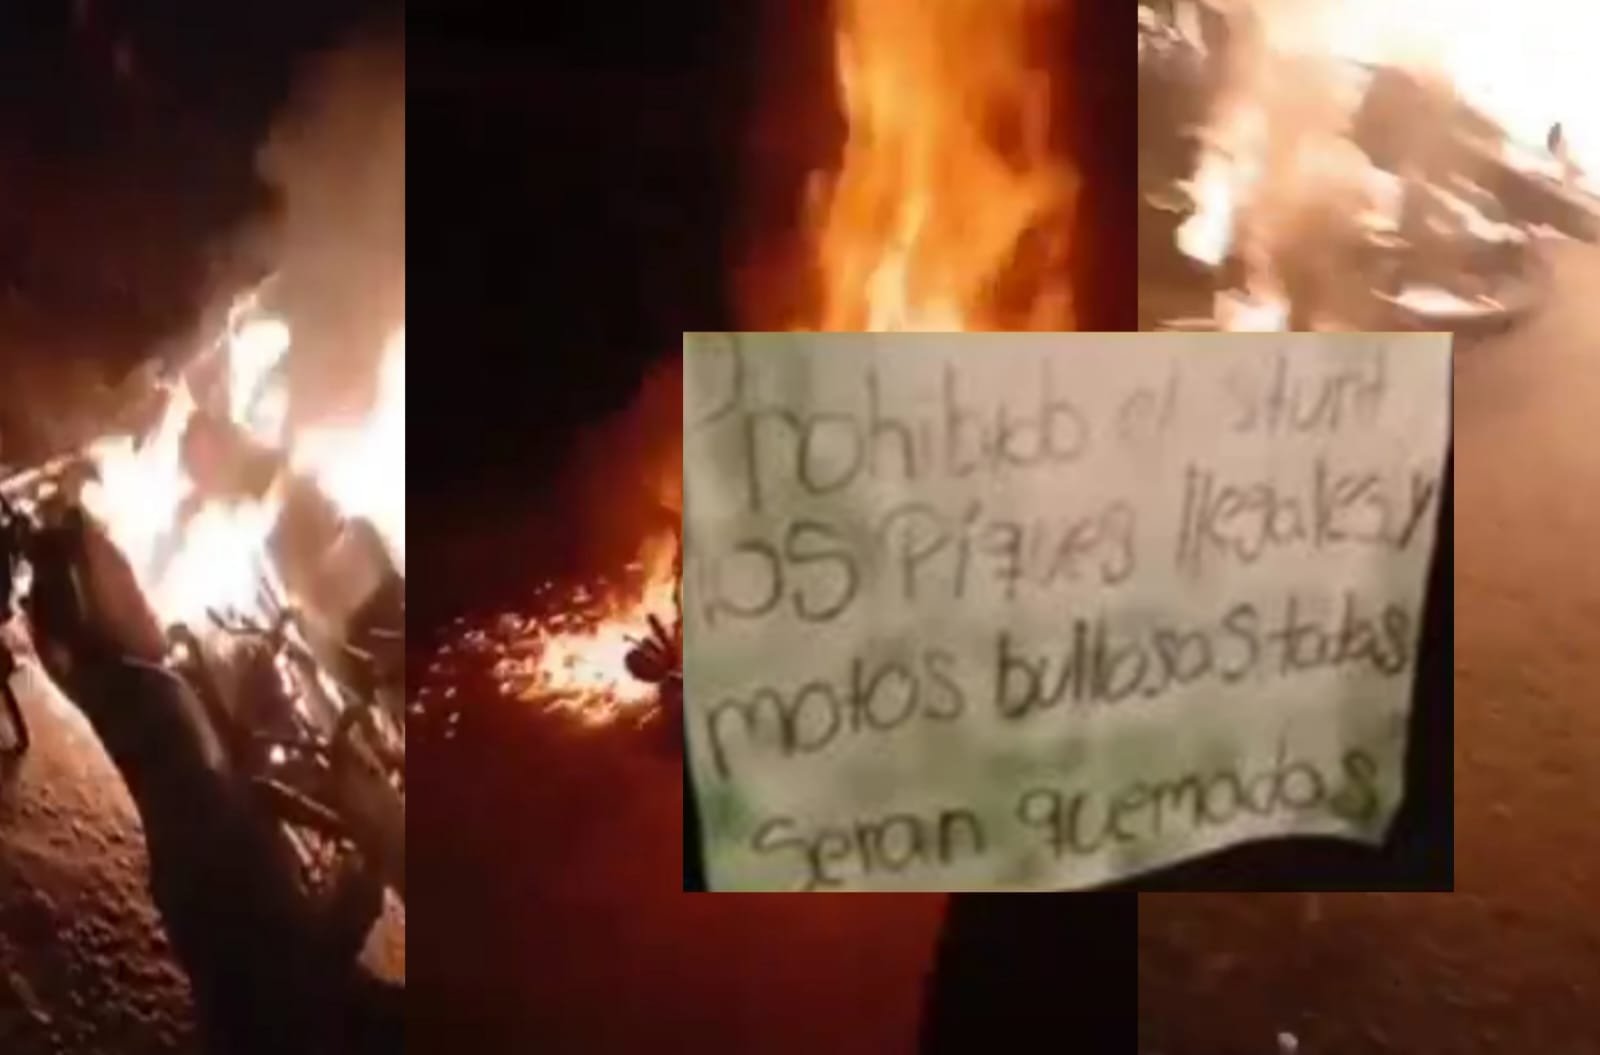 Prohibido el sturt
los Piques Ilegales y
motos bullosas todas
seran quemadas